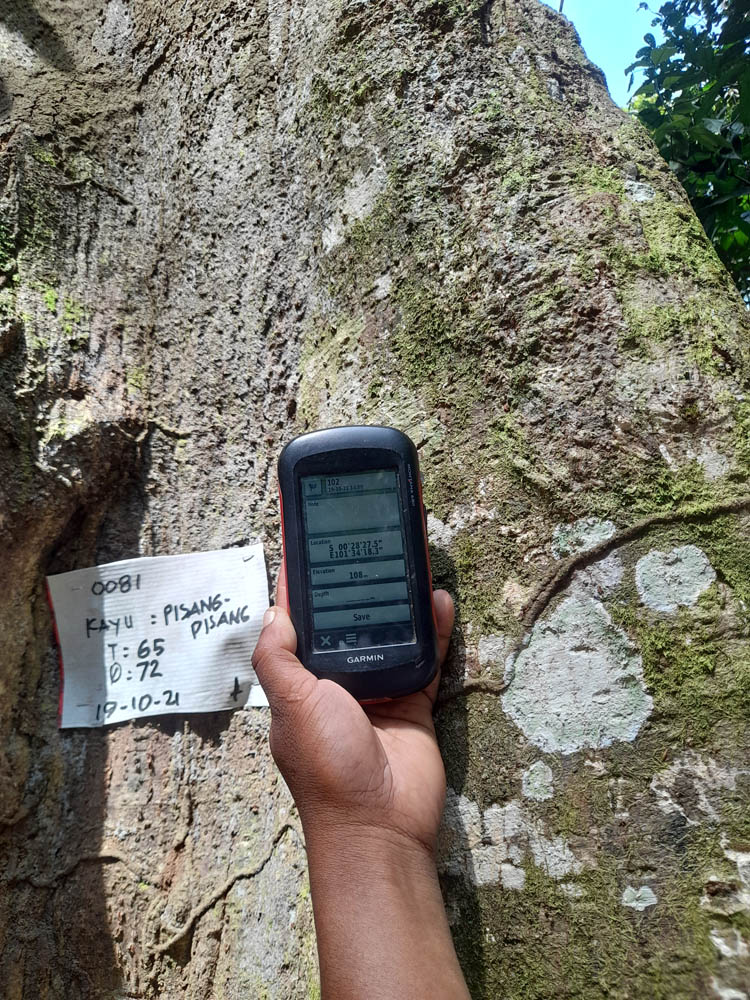 0081
KAYU : PISANG-
PISANG
T : 65
Ø : 72
19-10-21
102
Note
Location
S 00°28'27.5"
E101°34'18.3"
Elevation
108m
Depth
Save
GARMIN